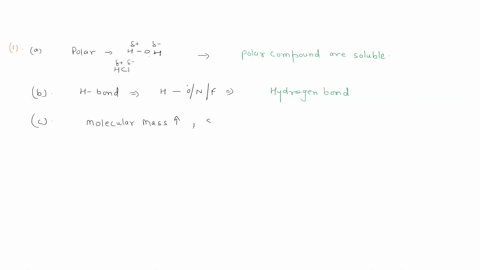 (1). (a) Polar → δ+ H - O δ- H → polar compound are soluble.
δ+ δ- HCl
(b). H- bond ⇒ H — O/N/F ⇒ Hydrogen bond
(c). molecular mass ↑ , s